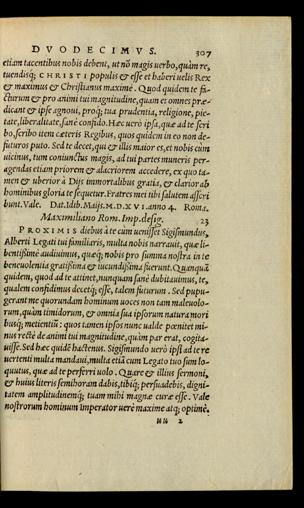 DVODECIMVS. 307
etiam tacentibus nobis debent, ut nõ magis uerbo, quàm re,
tuendisq; CHRISTI populis & esse et haberi uelis Rex
& maximus & Christianus maximè. Quod quidem te fa-
cturum & pro animi tui magnitudine, quam et omnes præ-
dicant & ipse agnoui, proq; tua prudentia, religione, pie-
tate, liberalitate, sanè confido. Hæc uerò ipsa, quæ ad te scri
bo, scribo item cæteris Regibus, quos quidem in eo non de-
futuros puto. Sed te decet, qui & illis maior es, et nobis cùm
uicinus, tum coniunctus magis, ad tui partes muneris per-
agendas etiam priorem & alacriorem accedere, ex quo ta-
men & uberior à Dijs immortalibus gratia, & clarior ab
hominibus gloria te sequetur. Fratres mei tibi salutem asscri
bunt. Vale. Dat. Idib. Maijs. M.D.XVI. anno 4. Roma.
Maximiliano Rom. Imp. desig. 23
PROXIMIS diebus à te cum uenisset Sigismundus,
Alberti Legati tui familiaris, multa nobis narrauit, quæ li-
bentissimè audiuimus, quæq; nobis pro summa nostra in te
beneuolentia gratissima & iucundissima fuerunt. Quanquã
quidem, quod ad te attinet, nunquam sanè dubitauimus, te,
qualem confidimus decetq; esse, talem futurum. Sed pupu-
gerant me quorundam hominum uoces non tam maleuolo-
rum, quàm timidorum, & omnia sua ipsorum natura mori
busq; metientiũ: quos tamen ipsos nunc ualde pœnitet mi-
nus rectè de animi tui magnitudine, quàm par erat, cogita-
uisse. Sed hæc quidẽ hactenus. Sigismundo uerò ipsi ad te re
uertenti multa mandaui, multa etiã cum Legato tuo sum lo-
quutus, quæ ad te perferri uolo. Quare & illius sermoni,
& huius literis fidem dabis, tibiq; persuadebis, digni-
tatem amplitudinemq; tuam mihi magnæ curæ esse. Vale
nostrorum hominum Imperator uerè maxime atq; optime.
NN 2